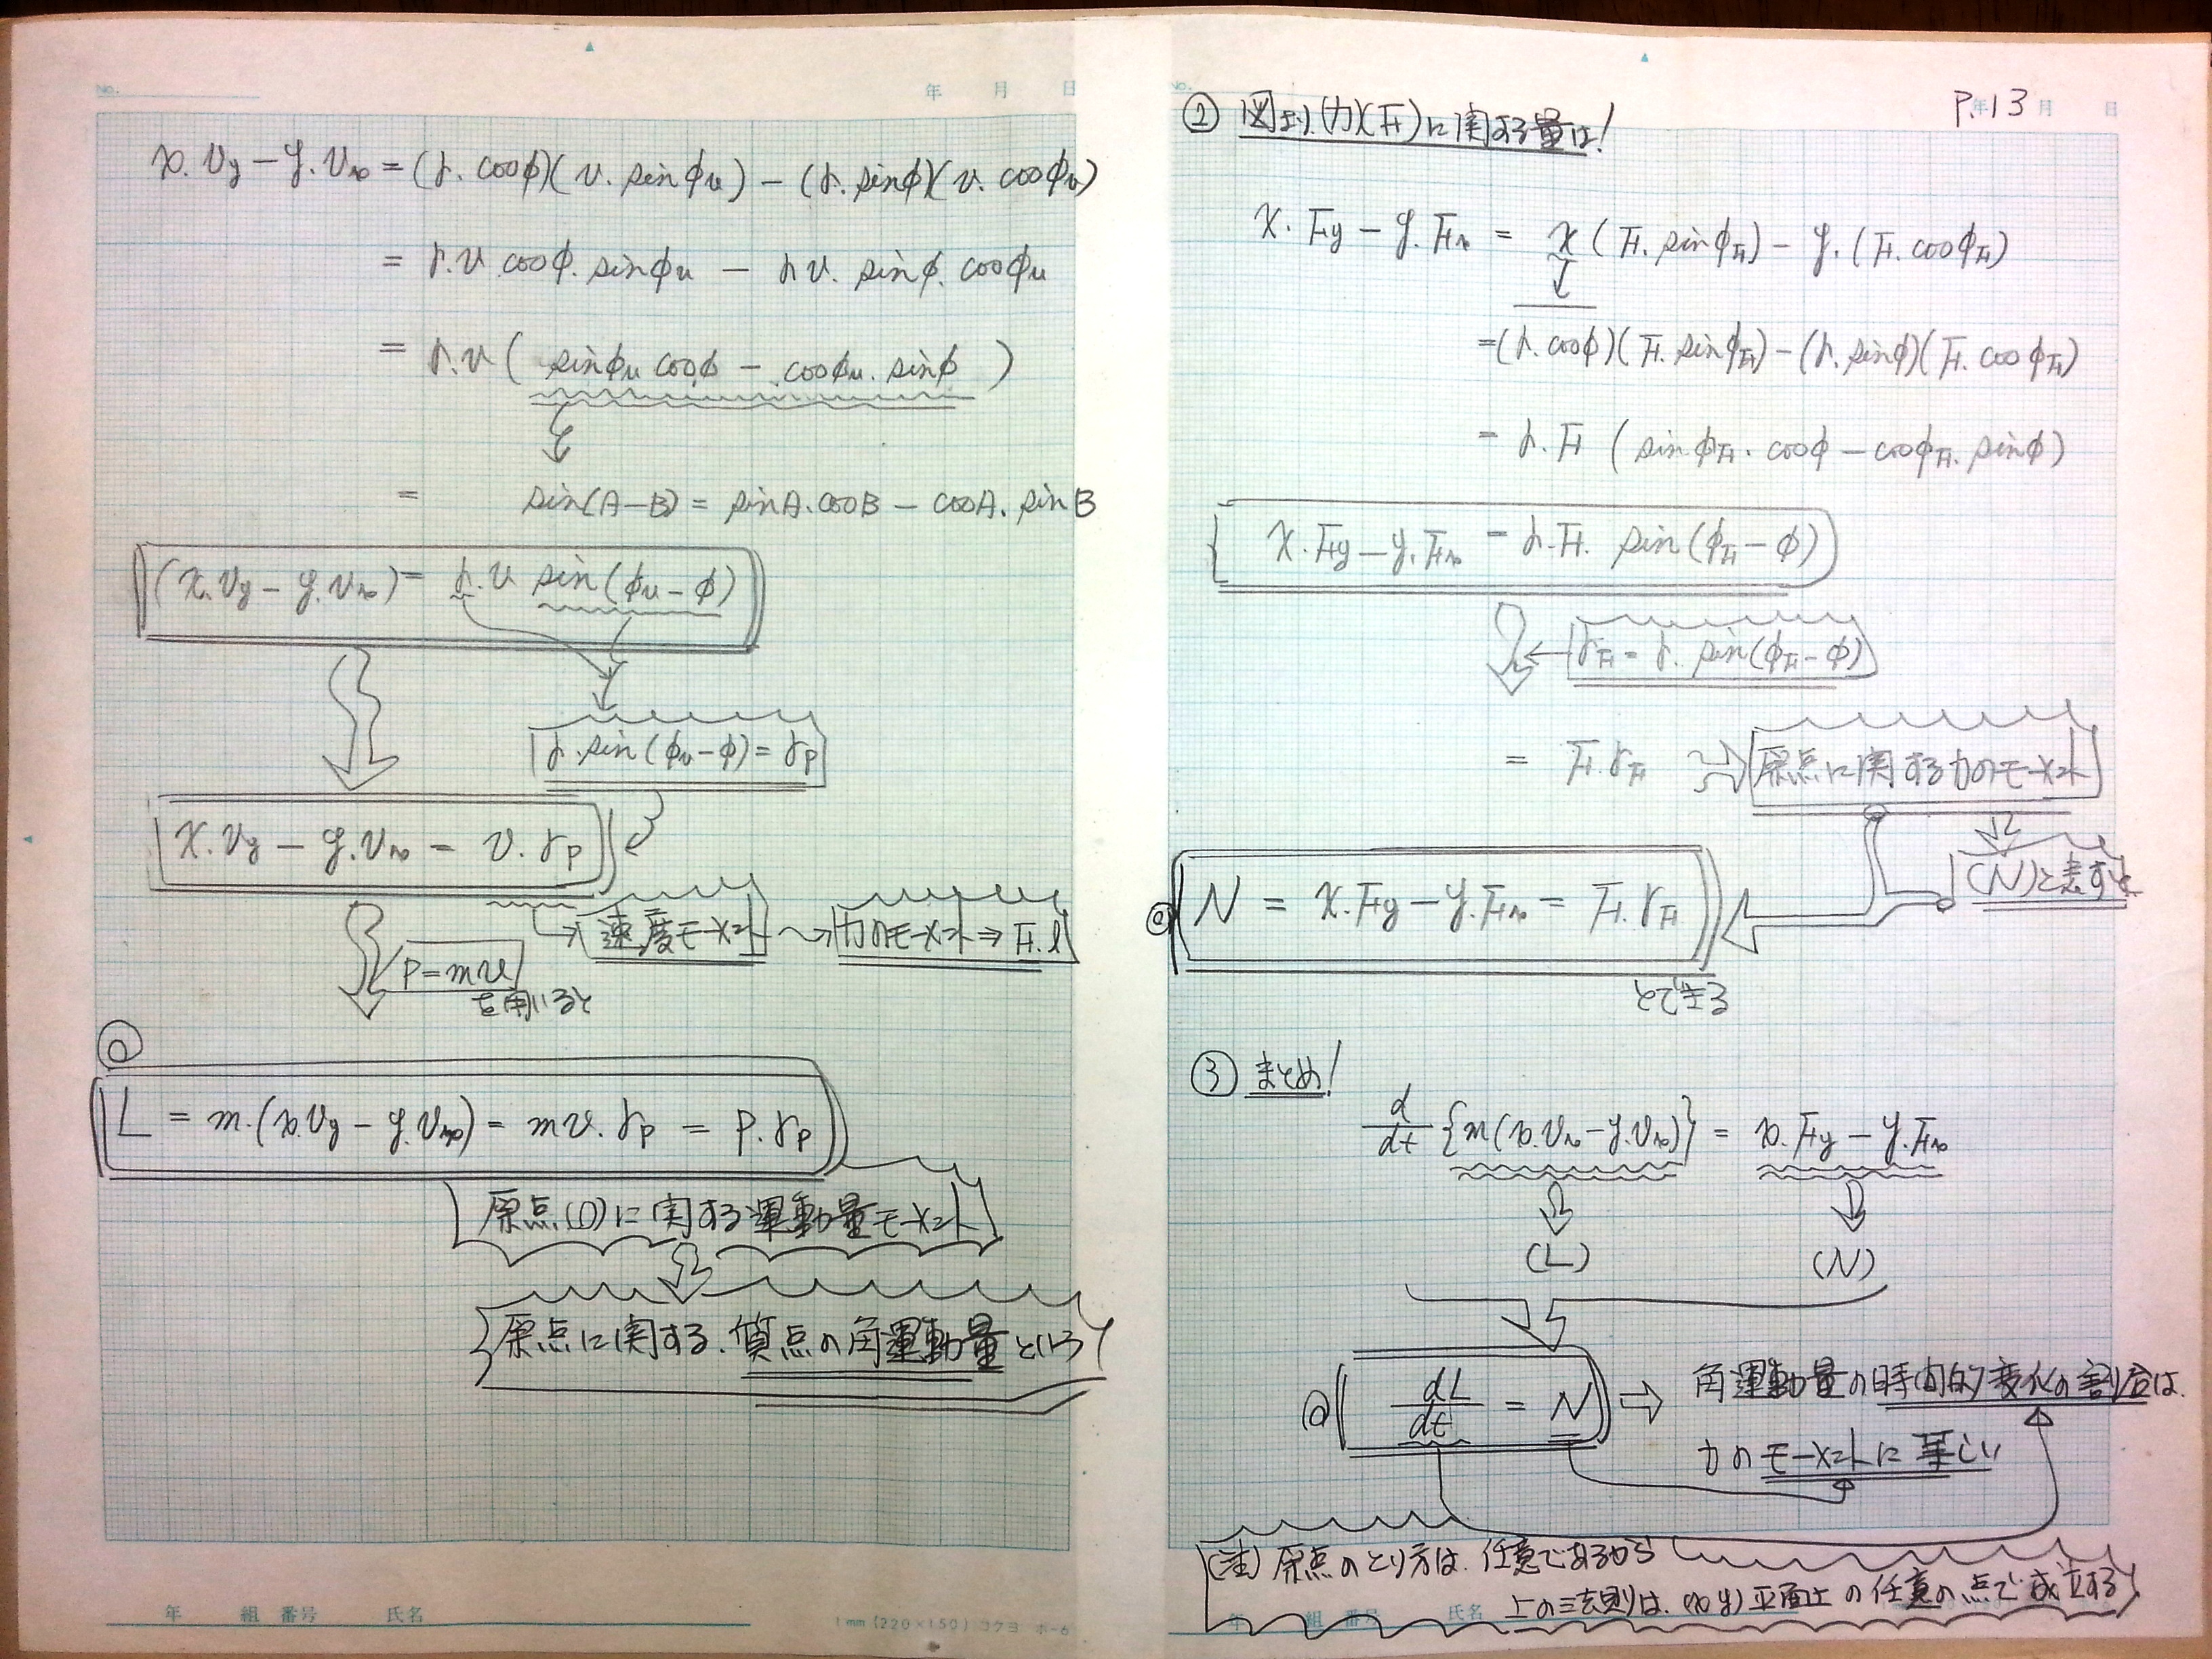 No.
年 月 日
x.vy − y.vx = (r.cosφ)(v.sinφv) − (r.sinφ)(v.cosφv)
= r.v.cosφ.sinφv − r.v.sinφ.cosφv
= r.v ( sinφv cosφ − cosφv.sinφ )
= sin(A−B) = sinA.cosB − cosA.sinB
(x.vy − y.vx) = r.v sin(φv − φ)
r.sin(φv−φ) = rp
x.vy − y.vx = v.rp
速度モーメント 力のモーメント ⇒ F.l
P = mv
を用いると
L = m.(x.vy − y.vx) = mv.rp = p.rp
原点(O)に関する運動量モーメント
原点に関する.質点の角運動量という
年 組 番号 氏名
1mm (220×150) コクヨ ホ-6
No.
年 月 日
P.13
② 図より.(力)(F)に関する量は!
x.Fy − y.Fx = x (F.sinφF) − y.(F.cosφF)
=(r.cosφ)(F.sinφF)−(r.sinφ)(F.cosφF)
= r.F (sinφF.cosφ − cosφF.sinφ)
x.Fy − y.Fx = r.F. sin(φF − φ)
rF = r. sin(φF − φ)
= F.rF 原点に関する力のモーメント
(N)と表すと
@ N = x.Fy − y.Fx = F.rF
とできる
③ まとめ!
d/dt {m(x.vx − y.vx)} = x.Fy − y.Fx
(L) (N)
@ dL/dt = N ⇒ 角運動量の時間的変化の割合は.
力のモーメントに等しい
(注) 原点のとり方は.任意であるから
上の法則は.(x y)平面上の任意の点で成立する
年 組 番号 氏名